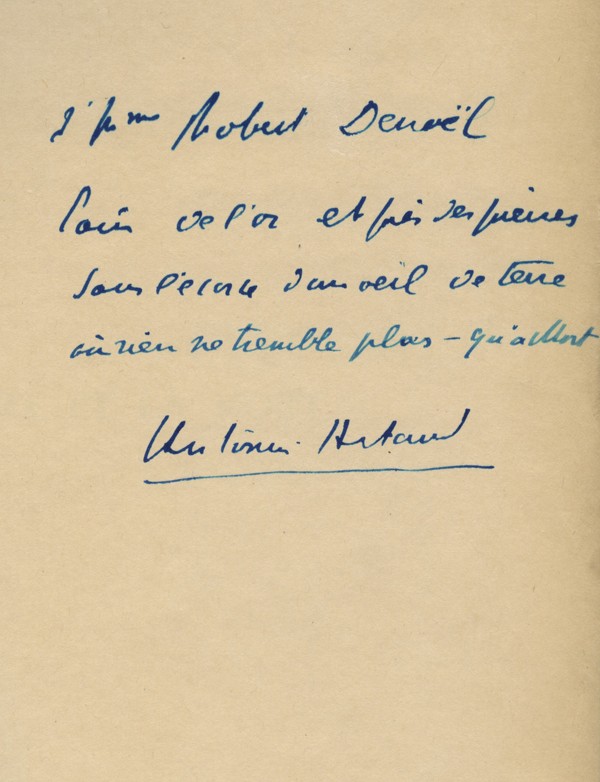 Robert Denoël
Loin de l'or et près des pierres
sous l'écorce d'un oeil de terre
où rien ne tremble plus – qu'a Mort
Antonin Artaud